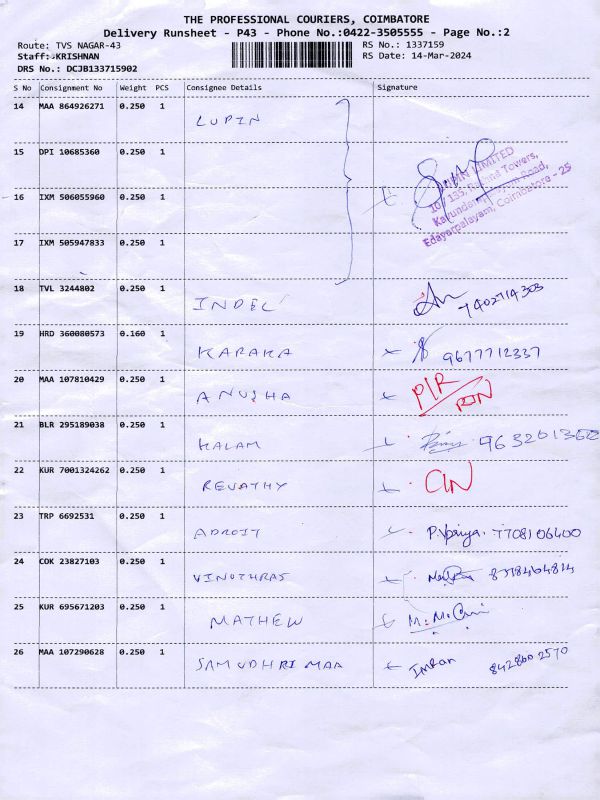 THE PROFESSIONAL COURIERS, COIMBATORE
Delivery Runsheet - P43 - Phone No.:0422-3505555 - Page No.:2
Route: TVS NAGAR-43 RS No.: 1337159
Staff:-KRISHNAN RS Date: 14-Mar-2024
DRS No.: DCJB133715902
S No Consignment No Weight PCS Consignee Details Signature
14 MAA 864926271 0.250 1 LUPIN
15 DPI 10685360 0.250 1
LUPIN LIMITED
Towers,
Road,
Edayarpalayam, Coimbatore - 25
16 IXM 506055960 0.250 1
17 IXM 505947833 0.250 1
18 TVL 3244802 0.250 1 INDEL 7402714303
19 HRD 360080573 0.160 1 KARAKA 9677712337
20 MAA 107810429 0.250 1 ANUSHA P/R RTN
21 BLR 295189038 0.250 1 KALAM
22 KUR 7001324262 0.250 1 REVATHY C/N
23 TRP 6692531 0.250 1 ADROIT P. Vpriya. 7708106400
24 COK 23827103 0.250 1 VINOTHRAS
25 KUR 695671203 0.250 1 MATHEW
26 MAA 107290628 0.250 1 SAMUDHRI MAA Imran 8428602570